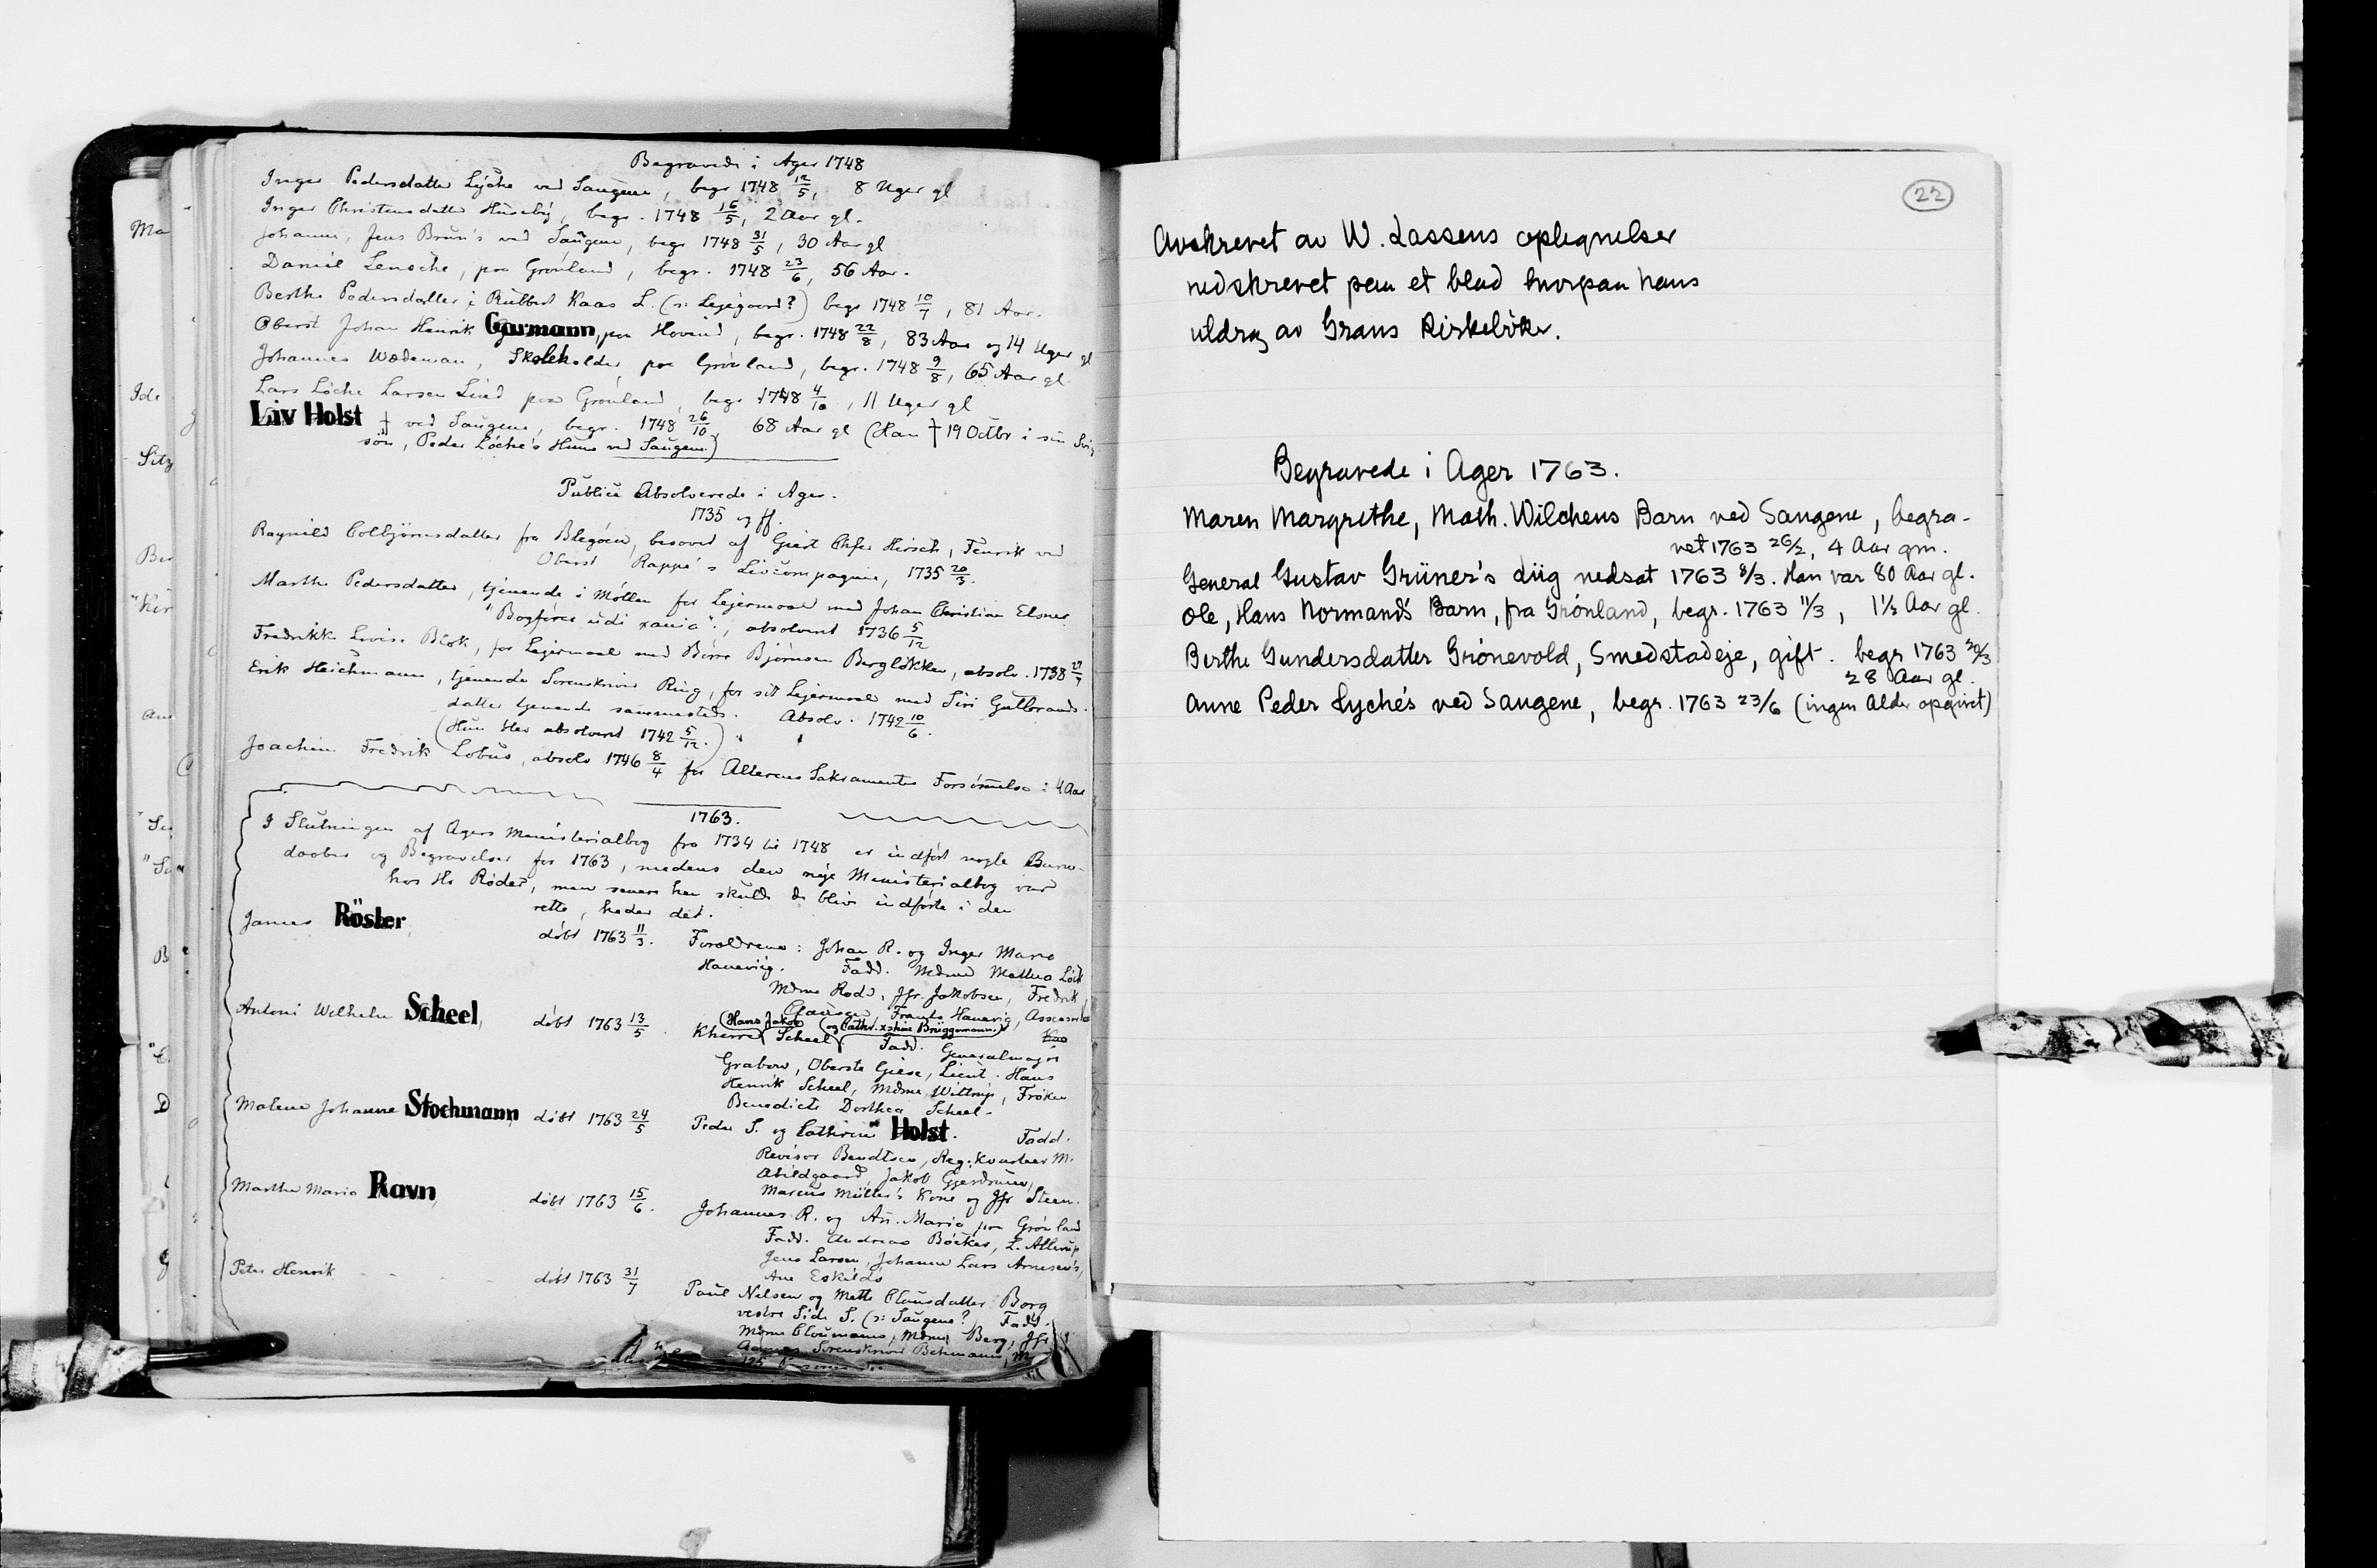 Begravede i Ager 1748
Inger Pedersdatter Lÿche ved Saugene, begr 1748 12/5, 8 Uger gl
Inger Christensdatter Huseby, begr. 1748 16/5, 2 Aar gl.
Johanne, Jens Brun's ved Saugene, begr 1748 31/5, 30 Aar gl
Daniel Lensche, paa Grønland, begr. 1748 23/6, 56 Aar.
Berthe Pedersdatter i Rubbert Kaas L. (ɔ: Lejegaard?) begr 1748 10/7, 81 Aar.
Oberst Johan Henrik Garmann, paa Hovind, begr. 1748 22/8, 83 Aar og 14 Uger gl
Johannes Wædeman, Skoleholder, paa Grønland, begr. 1748 9/8, 65 Aar gl.
Lars Löche Larsen Lind paa Grønland, begr 1748 4/10, 11 Uger gl
Liv Holst ved Saugene, begr. 1748 26/10, 68 Aar gl (Han † 19 Octbr i sin Svi
søn, Peder Löche's Huus ved Saugene.)
Publice Absolverede i Ager.
1735 og ff.
Ragnild Colbjörnsdatter fra Blegøen, besovet af Giert Chfer Hirsch, Fenrik ved
Oberst Rappe's Livcompagnie, 1735 20/3.
Marthe Pedersdatter, tjenende i Møllen for Lejermaal med Johan Christian Elsner
"Bogfører udi xania"., absolveret 1736 5/12
Fredrikke Lovise Blok, for Lejermaal med Börre Bjørnsen Bergløkken, absolv. 1738 27/7
Erik Heichmann, tjenende Sorenskriver Ring, for sit Lejermaal med Siri Gulbrands-
datter tjenende sammesteds. Absolv. 1742 10/6.
(Hun blev absolveret 1742 5/12.)
Joachim Fredrik Lobus, absolv 1746 8/4 for Alterens Sakramentes Forsømmelse i 4 Aar
1763.
I Slutningen af Agers Ministerialbog fra 1734 til 1748 er indført nogle Barne-
daaber og Begravelser for 1763, medens den nye Ministerialbog var
hos Hr Röder, men senere hen skulde de blive indførte i den
rette, heder det.
James Rösler, döbt 1763 11/3. Forældrene: Johan R. og Inger Marie
Hauerviig. Fadd. Mdme Mathea Löck
Mdme Rodd, Jfr. Jakobsen, Fredrik
Clausen, Frants Hauerig, Assessor
Antoni Wilhelm Scheel, döbt 1763 13/5. Kherre (Hans Jakob) Scheel (og Cathr. xstine Brüggemann.)
Fadd. Generalmajor
Grabow, Oberste Giese, Lieut. Hans
Henrik Scheel, Mdme Wittrup, Frøken
Benedicte Dorthea Scheel.
Malene Johanne Stochmann döbt 1763 24/5 Peder S. og Cathrine Holst. Fadd.
Revisor Bendtsen, Reg: Kvarteer M.
Abildgaard, Jakob Gjerdrum,
Marcus Müller's Kone og Jfr Steen.
Marthe Marie Ravn, döbt 1763 15/6. Johannes R. og An. Marie paa Grønland
Fadd. Andreas Böcker, L. Allerup
Jens Larsen, Johanne Lars Arnesen's,
Ane Eskilds
Peter Henrik - - - döbt 1763 31/7 Paul Nilsen og Mette Clausdatter Borg
vestre Side S. (ɔ: Saugene? Fadd.
Mdme Cloumann, Mdme Berg, Jfr
Sorenskriver Behmann, M
22
Avskrevet av W. Lassens optegnelser
nedskrevet paa et blad hvorpaa hans
utdrag av Grans Kirkebøker.
Begravede i Ager 1763.
Maren Margrethe, Math. Wilchens Barn ved Saugene, begra-
vet 1763 26/2, 4 Aar gm.
General Gustav Grüner's Liig nedsat 1763 8/3. Han var 80 Aar gl.
Ole, Hans Normand's Barn, fra Grønland, begr. 1763 11/3, 1½ Aar gl.
Berthe Gundersdatter Grönevold, Smedstadeje, gift. begr 1763 20/3
28 Aar gl.
Anne Peder Lyche's ved Saugene, begr. 1763 23/6 (ingen Alder opgivet)